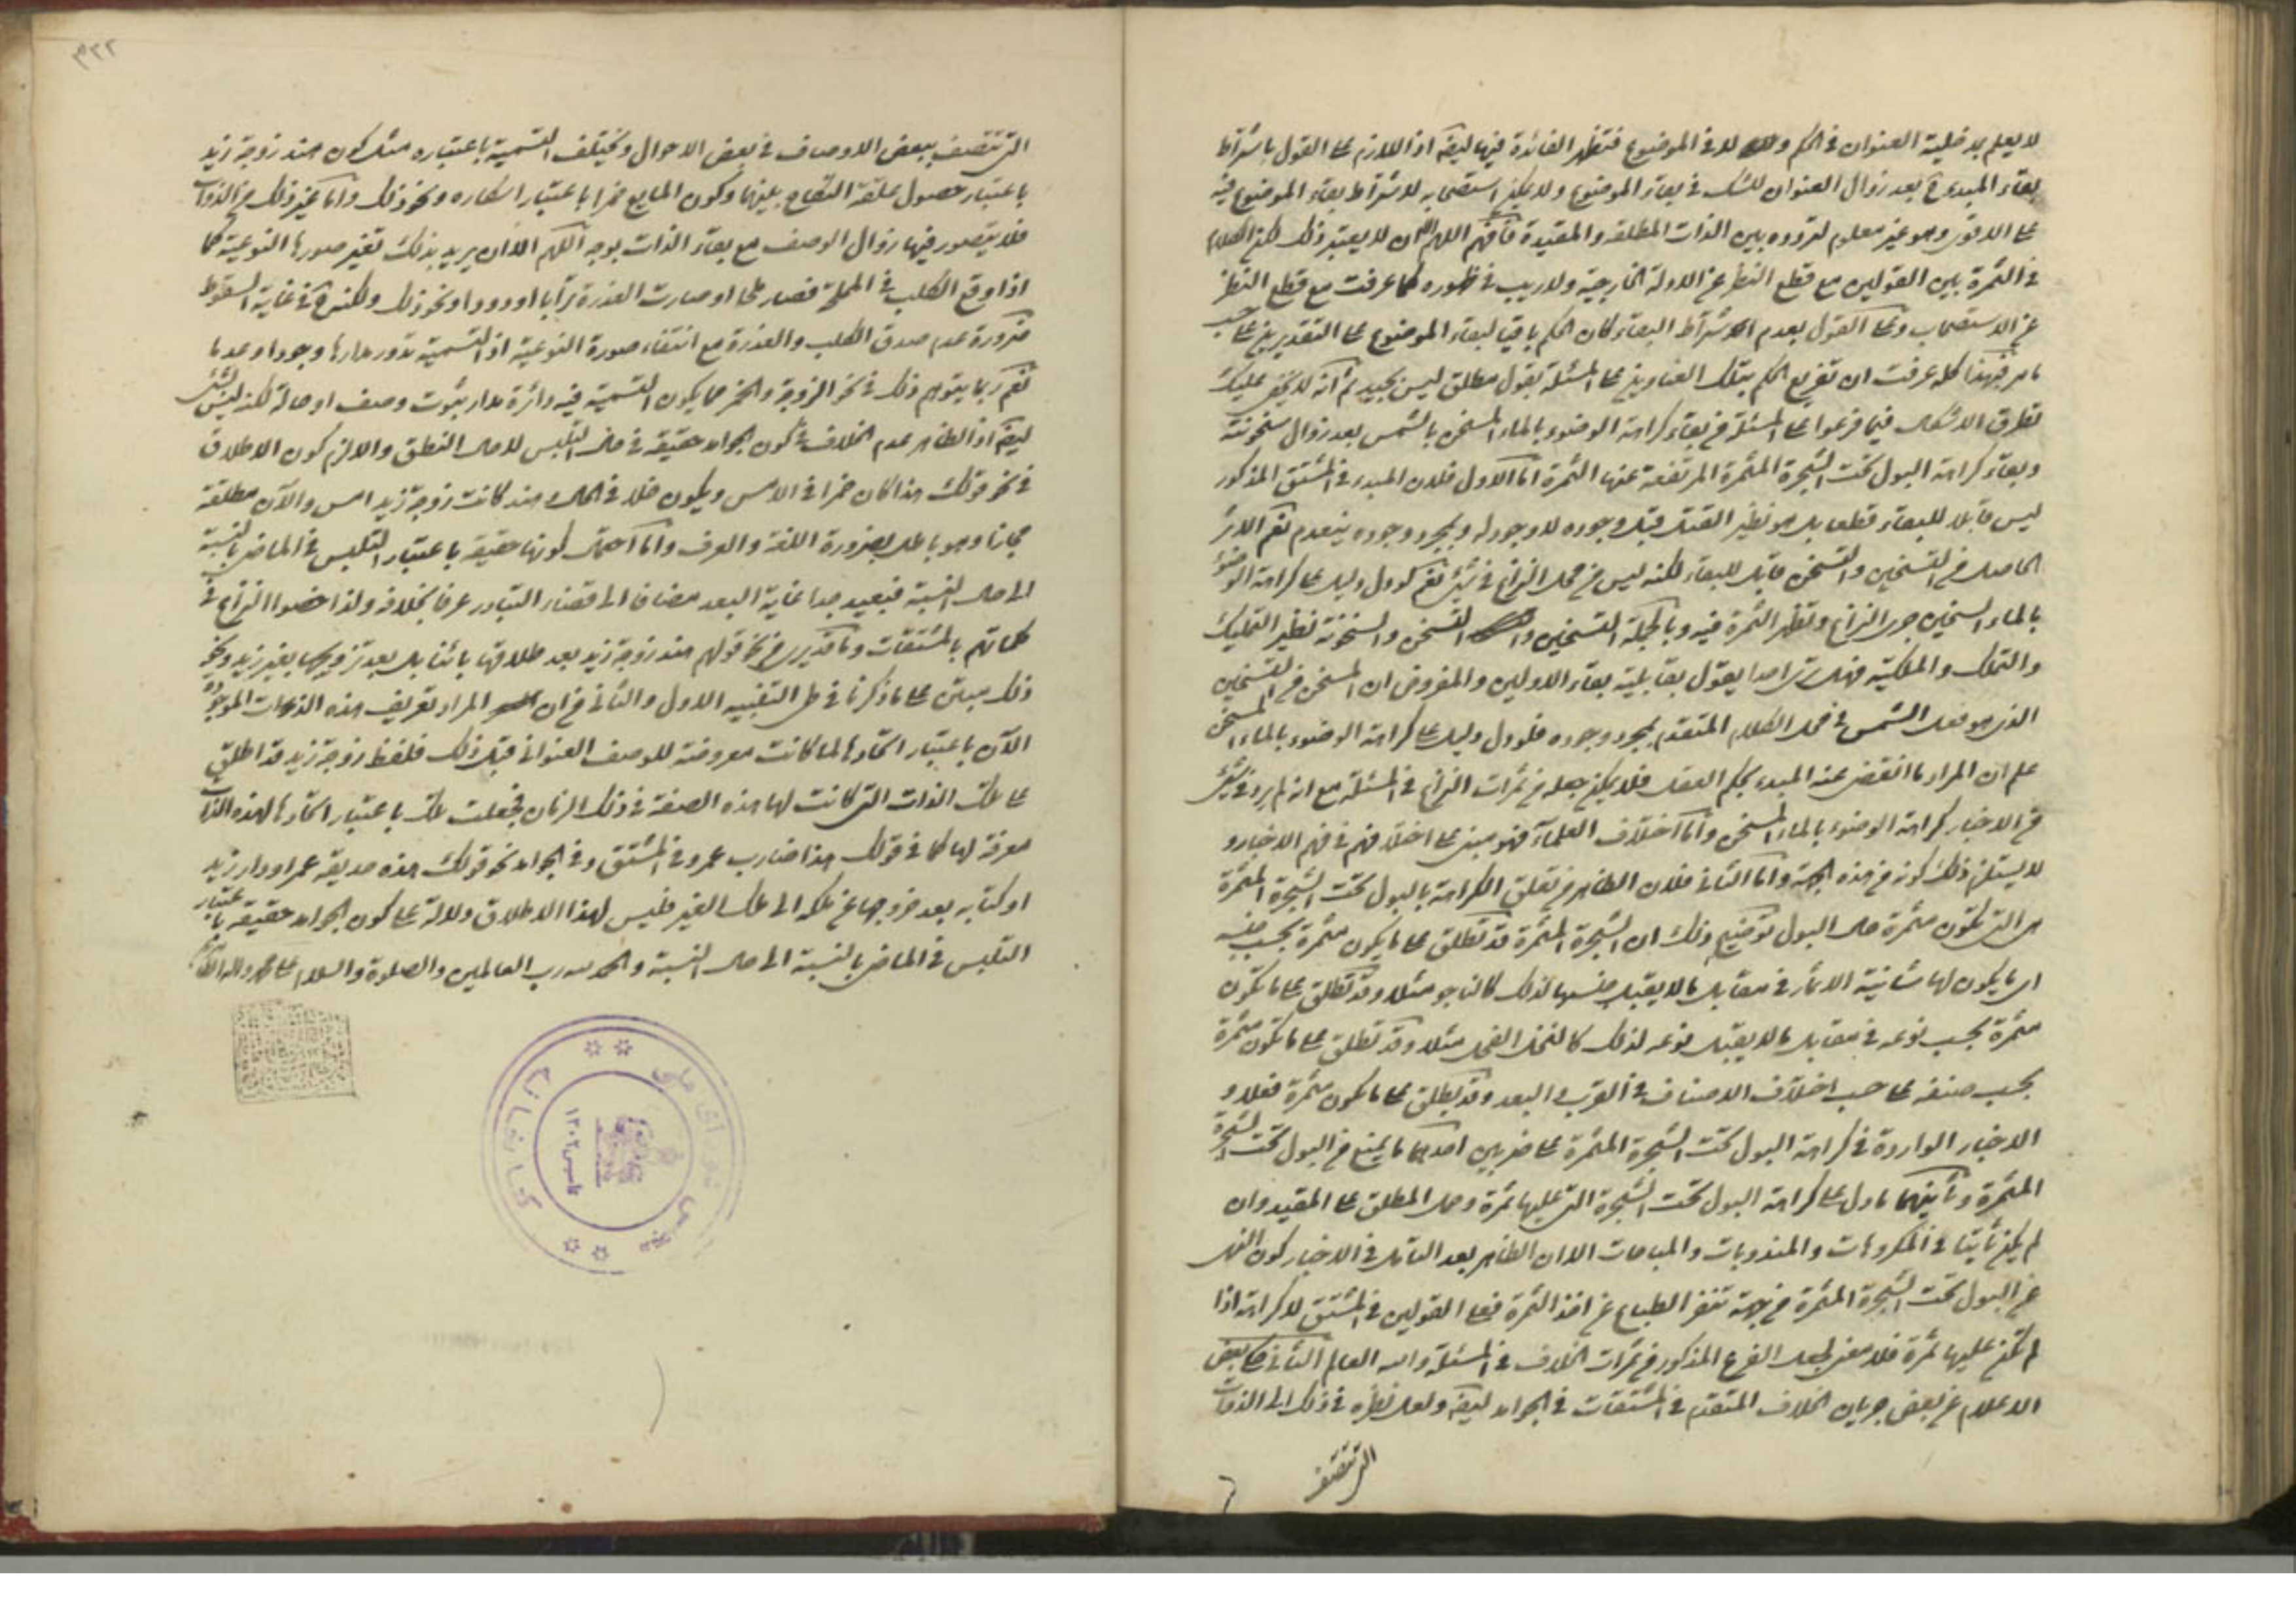 لا يعلم مدخلية العنوان في الحكم ولا في الموضوع فتظهر الفائدة فيها ايضا اذ اللازم على القول باشتراط
بقاء المبدء ح بعد زوال العنوان للشك في بقاء الموضوع ولا يمكن استصحابه لاشتراط بقاء الموضوع فيه
على الاقوى وهو غير معلوم لتردده بين الذات المطلقة والمقيدة فافهم اللهم الا ان لا يعتبر ذلك لكن الكلام
في الثمرة بين القولين مع قطع النظر عن الادلة الخارجية ولا ريب في ظهوره كما عرفت مع قطع النظر
عن الاستصحاب وعلى القول بعدم اشتراط البقاء كان الحكم باقيا لبقاء الموضوع على التقديرين على حسب
ما مر فبهذا كله عرفت ان تفريع الحكم بتلك العناوين على المسئلة بقول مطلق ليس بجيد ثم انه لا يخفى عليك
تطرق الاشكال فيما فرعوا على المسئلة من بقاء كراهة الوضوء بالماء المسخن بالشمس بعد زوال سخونته
وبقاء كراهة البول تحت الشجرة المثمرة المرتفعة عنها الثمرة اما الاول فلان المبدء في المشتق المذكور
ليس قابلا للبقاء قطعا بل هو نظير القتل قبل وجوده لا وجود له وبمجرد وجوده ينعدم نعم الاثر
الحاصل من التسخين والتسخن قابل للبقاء لكنه ليس من محل النزاع في شئ نعم لو دل دليل على كراهة الوضوء
بالماء السخين جرى النزاع وتظهر الثمرة فيه وبالجملة التسخين والتسخن والسخونة نظير التمليك
والتملك والملكية فهل ترى احدا يقول بقابلية بقاء الاولين والمفروض ان المسخن من التسخين
الذي هو فعل الشمس في محل الكلام المتقدم بمجرد وجوده فلو دل دليل على كراهة الوضوء بالماء المسخن
علم ان المراد ما انقضى عنه المبدء بحكم العقل فلا يمكن جعله من ثمرات النزاع في المسئلة مع انه لم يرد في شئ
من الاخبار كراهة الوضوء بالماء المسخن واما اختلاف العلماء فهو مبنى على اختلافهم في فهم الاخبار و
لا يستلزم ذلك كونه من هذه الجهة واما الثاني فلان الظاهر من تعلق الكراهة بالبول تحت الشجرة المثمرة
هي التي تكون مثمرة حال البول توضيح ذلك ان الشجرة المثمرة قد تطلق على ما يكون مثمرة بحسب جنسه
اي ما يكون لها شانية الاثمار في مقابل ما لا يقبل جنسها لذلك كالناجو مثلا وقد تطلق على ما تكون
مثمرة بحسب نوعه في مقابل ما لا يقبل نوعه لذلك كالنخل الفحل مثلا وقد تطلق على ما تكون مثمرة
بحسب صنفه على حسب اختلاف الاصناف في القرب والبعد وقد يطلق على ما تكون مثمرة فعلا و
الاخبار الواردة في كراهة البول تحت الشجرة المثمرة على ضربين احدهما ما يمنع من البول تحت الشجرة
المثمرة وثانيهما ما دل على كراهة البول تحت الشجرة التي عليها ثمرة وحمل المطلق على المقيد وان
لم يكن ثابتا في المكروهات والمندوبات والمباحات الا ان الظاهر بعد التامل في الاخبار كون النهى
عن البول تحت الشجرة المثمرة من جهة تنفر الطباع عن اخذ الثمرة فعلى القولين في المشتق لا كراهة اذا
لم تكن عليها ثمرة فلا معنى لجعل الفرع المذكور من ثمرات الخلاف في المسئلة والله العالم الثاني حكى بعض
الاعلام عن بعض جريان الخلاف المتقدم في المشتقات في الجوامد ايضا ولعل نظره في ذلك الى الذوات
التي تتصف
التي تتصف ببعض الاوصاف في بعض الاحوال ويختلف التسمية باعتباره مثل كون هند زوجة زيد
باعتبار حصول علقة النكاح بينهما وكون المايع خمرا باعتبار اسكاره ونحو ذلك واما غير ذلك من الذوات
فلا يتصور فيها زوال الوصف مع بقاء الذات بوجه اللهم الا ان يريد بذلك تغير صورها النوعية كما
اذا وقع الكلب في المملحة فصار ملحا او صارت العذرة ترابا او دودا ونحو ذلك ولكنه ح في غاية السقوط
ضرورة عدم صدق الكلب والعذرة مع انتفاء صورة النوعية اذ التسمية تدور مدارها وجودا وعدما
نعم ربما يتوهم ذلك في نحو الزوجة والخمر مما يكون التسمية فيه دائرة مدار ثبوت وصف او حالة لكنه ليس بشئ
ايضا اذ الظاهر عدم الخلاف في كون الجوامد حقيقة في حال التلبس لا حال النطق والا لزم كون الاطلاق
في نحو قولك هذا كان خمرا في الامس ويكون خلا في الحال هند كانت زوجة زيد امس والآن مطلقة
مجازا وهو باطل بضرورة اللغة والعرف واما احتمال كونها حقيقة باعتبار التلبس في الماضي بالنسبة
الى حال النسبة فبعيد جدا غاية البعد مضافا الى قضاء التبادر عرفا بخلافه ولذا خصوا النزاع في
كلماتهم بالمشتقات وما قد يرى من نحو قولهم هند زوجة زيد بعد طلاقها بائنا بل بعد تزويجها بغير زيد ونحو
ذلك مبنى على ما ذكرنا في طى التنبيه الاول والثاني من ان المراد تعريف هذه الذوات الموجودة
الآن باعتبار اتحادها لما كانت معروضة للوصف العنواني قبل ذلك فلفظ زوجة زيد قد اطلق
على تلك الذات التي كانت لها هذه الصفة في ذلك الزمان فجعلت تلك باعتبار اتحادها لهذه الذات
معرفة لها كما في قولك هذا ضارب عمرو في المشتق وفي الجوامد نحو قولك هذه حديقة عمرو دار زيد
او كتابه بعد خروجها عن ملكه الى ملك الغير فليس لهذا الاطلاق دلالة على كون الجوامد حقيقة باعتبار
التلبس في الماضي بالنسبة الى حال النسبة والحمد لله رب العالمين والصلوة والسلام على محمد واله